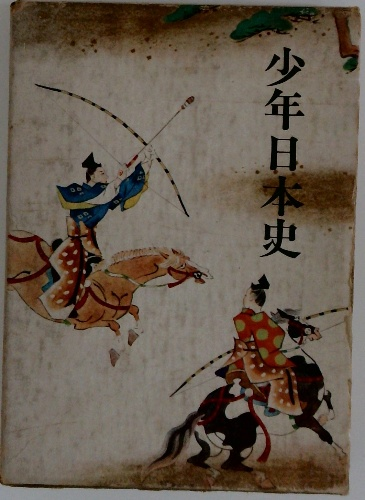 少年日本史